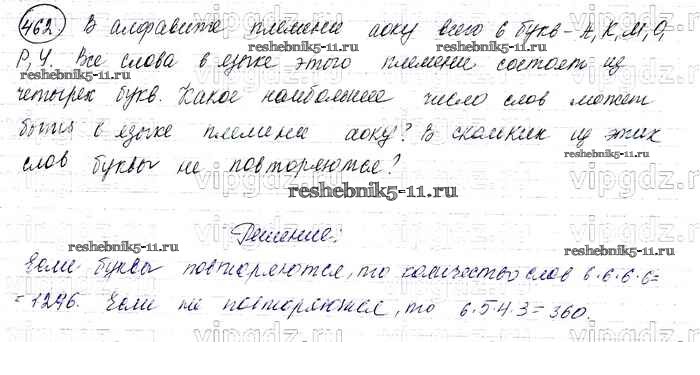 462. В алфавите племени аоку всего 6 букв - А, К, М, О,
Р, У. Все слова в языке этого племени состоят из
четырех букв. Какое наибольшее число слов может
быть в языке племени аоку? В скольких из этих
слов буквы не повторяются?
Решение:
Если буквы повторяются, то количество слов 6·6·6·6=
=1296. Если не повторяются, то 6·5·4·3=360.
reshebnik5-11.ru
reshebnik5-11.ru
reshebnik5-11.ru
reshebnik5-11.ru
reshebnik5-11.ru
reshebnik5-11.ru
vipgdz.ru